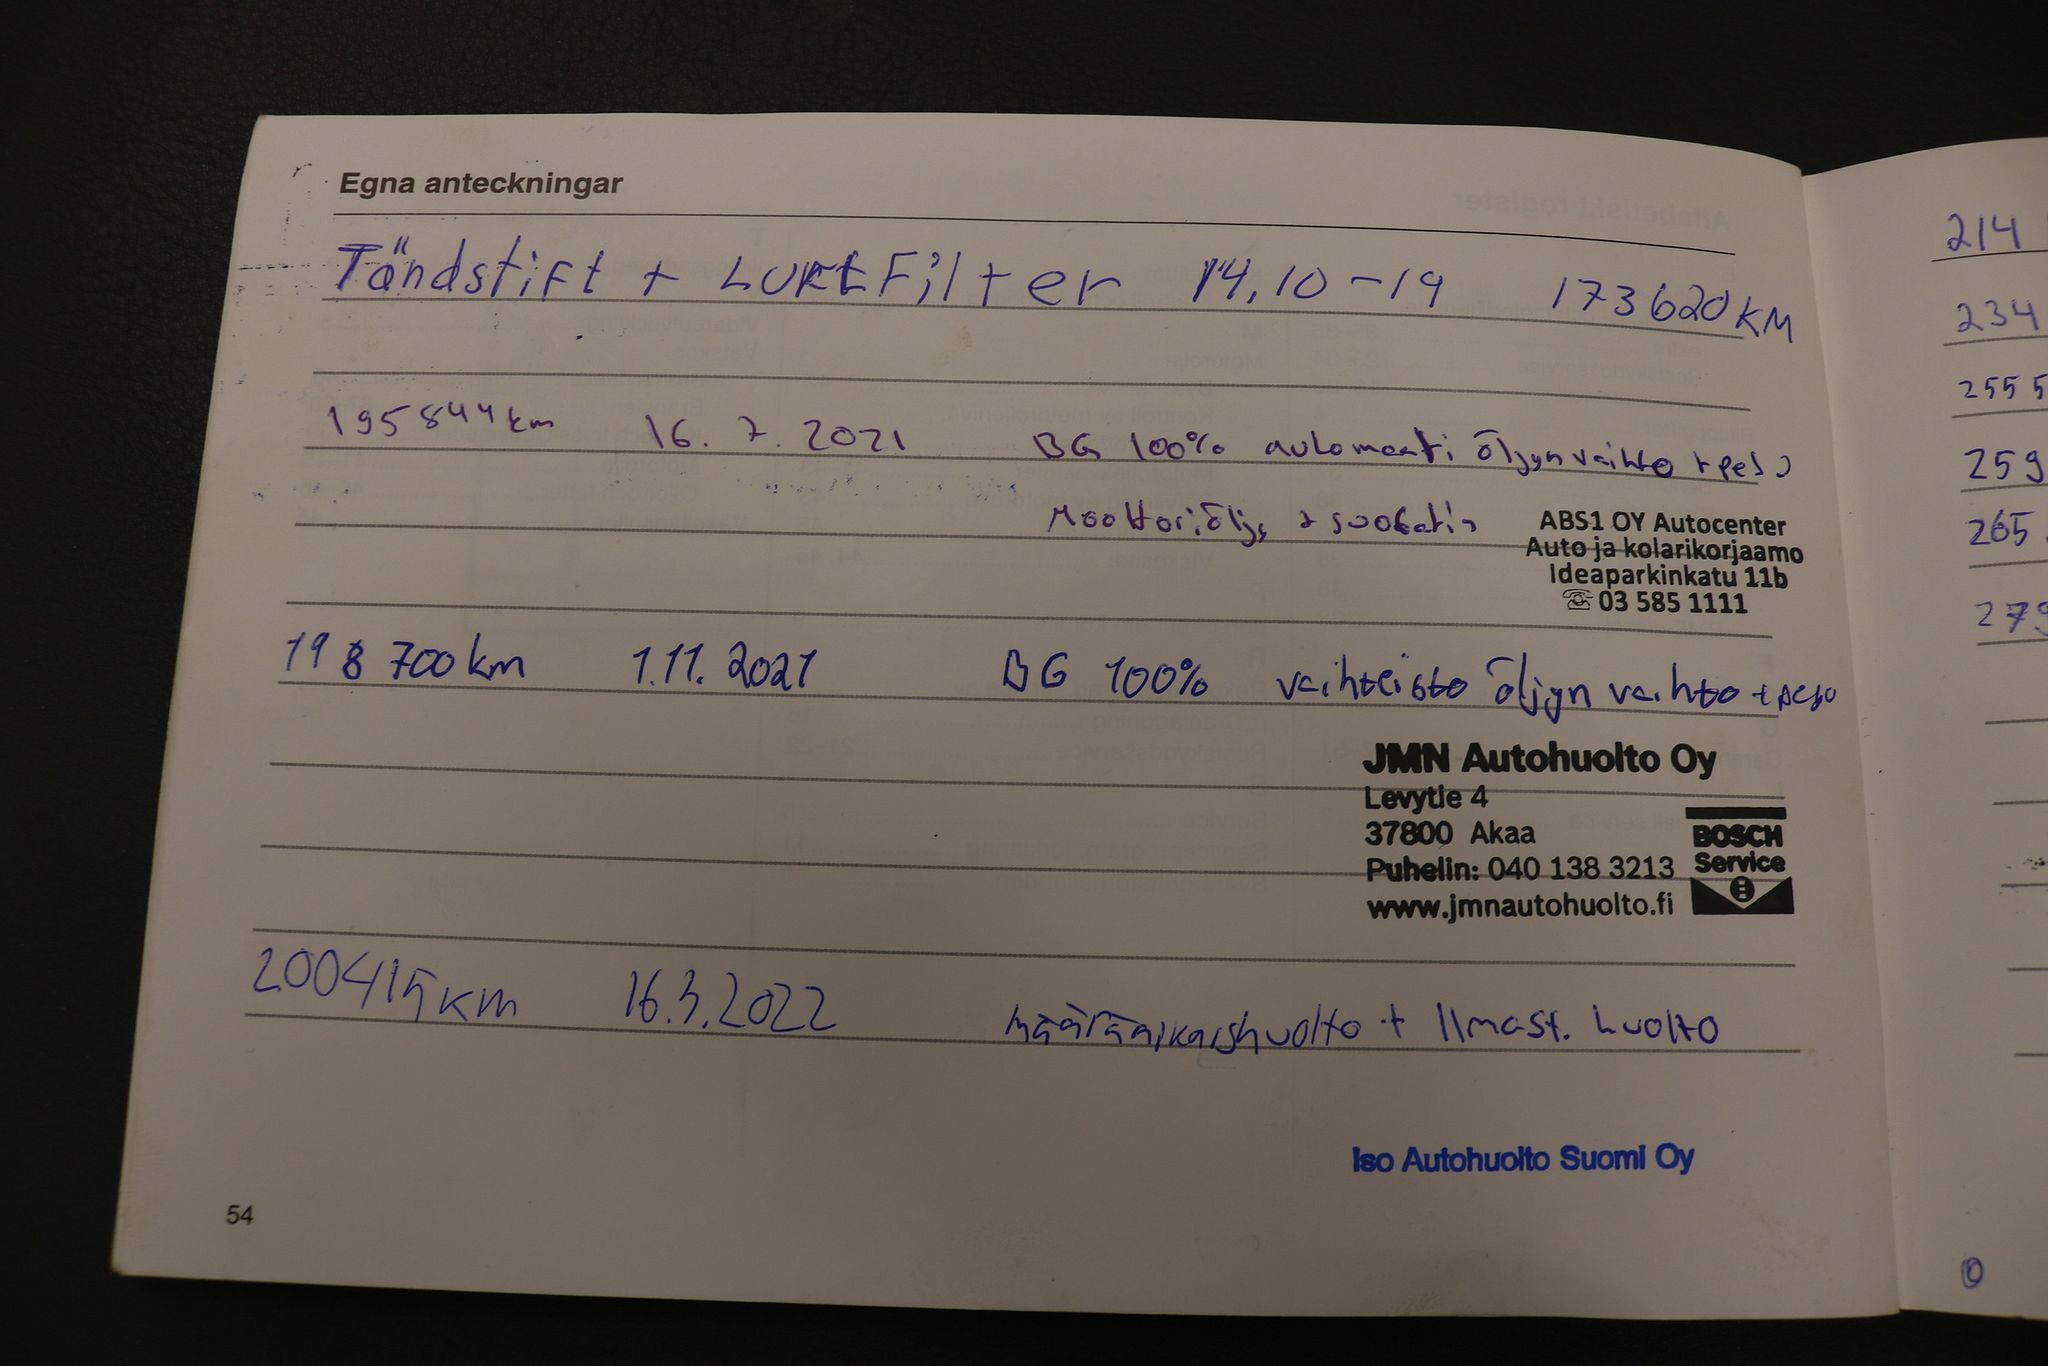 Egna anteckningar
Tändstift + LUFtFilter 14.10-19 173620 KM
195844 km 16. 7. 2021 BG 100% automaati öljynvaihto + pesu
Moottoriöljy + suodatin
ABS1 OY Autocenter
Auto ja kolarikorjaamo
Ideaparkinkatu 11b
☏ 03 585 1111
198 700 km 1.11.2021 BG 100% vaihteisto öljyn vaihto + pesu
JMN Autohuolto Oy
Levytie 4
37800 Akaa
Puhelin: 040 138 3213
www.jmnautohuolto.fi
BOSCH
Service
200415 km 16.3.2022 Määräaikaishuolto + Ilmast. huolto
Iso Autohuolto Suomi Oy
54
214
234
255 5
259
265
279